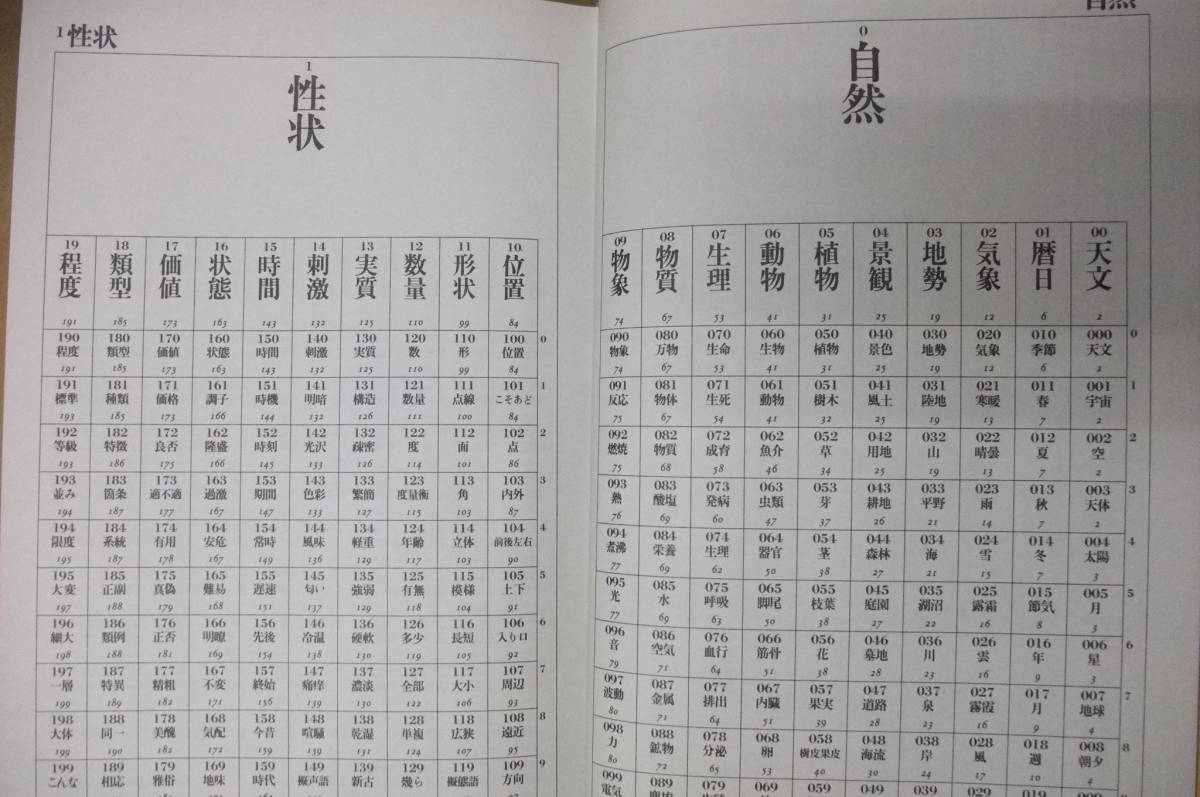 自然
0
自然
00 01 02 03 04 05 06 07 08 09
天文 暦日 気象 地勢 景観 植物 動物 生理 物質 物象
2 6 12 19 25 31 41 53 67 74
0
000 010 020 030 040 050 060 070 080 090
天文 季節 気象 地勢 景色 植物 生物 生命 万物 物象
2 6 12 19 25 31 41 53 67 74
1
001 011 021 031 041 051 061 071 081 091
宇宙 春 寒暖 陸地 風土 樹木 動物 生死 物体 反応
2 7 13 19 25 31 41 55 67 75
2
002 012 022 032 042 052 062 072 082 092
空 夏 晴曇 山 用地 草 魚介 成育 物質 燃焼
2 7 13 19 25 34 46 58 68 75
3
003 013 023 033 043 053 063 073 083 093
天体 秋 雨 平野 耕地 芽 虫類 発病 酸塩 熱
2 7 14 21 26 37 47 60 69 76
4
004 014 024 034 044 054 064 074 084 094
太陽 冬 雪 海 森林 茎 器官 生理 栄養 煮沸
3 7 15 21 27 38 50 62 69 77
5
005 015 025 035 045 055 065 075 085 095
月 節気 露霜 湖沼 庭園 枝葉 脚尾 呼吸 水 光
3 8 16 22 27 38 50 63 69 77
6
006 016 026 036 046 056 066 076 086 096
星 年 雲 川 墓地 花 筋骨 血行 空気 音
3 9 16 23 28 38 51 64 71 79
7
007 017 027 037 047 057 067 077 087 097
地球 月 露霞 泉 道路 果実 内臓 排出 金属 波動
4 9 16 23 28 39 51 64 71 80
8
008 018 028 038 048 058 068 078 088 098
朝夕 週 風 岸 海流 樹皮果皮 卵 分泌 鉱物 力
4 10 17 24 30 40 53 65 72 80
019 029 039 049 059 069 079 089 099
電気
1 性状
1
性状
10 11 12 13 14 15 16 17 18 19
位置 形状 数量 実質 刺激 時間 状態 価値 類型 程度
84 99 110 125 132 143 163 173 185 191
0
100 110 120 130 140 150 160 170 180 190
位置 形 数 実質 刺激 時間 状態 価値 類型 程度
84 99 110 125 132 143 163 173 185 191
1
101 111 121 131 141 151 161 171 181 191
こそあど 点線 数量 構造 明暗 時機 調子 価格 種類 標準
84 100 111 126 132 144 166 173 185 193
2
102 112 122 132 142 152 162 172 182 192
点 面 度 疎密 光沢 時刻 隆盛 良否 特徴 等級
86 101 114 126 133 145 166 175 186 193
3
103 113 123 133 143 153 163 173 183 193
内外 角 度量衡 繁簡 色彩 期間 過激 適不適 箇条 並み
87 103 115 127 133 147 167 177 187 194
4
104 114 124 134 144 154 164 174 184 194
前後左右 立体 年齢 軽重 風味 常時 安危 有用 系統 限度
90 103 117 129 136 149 167 178 187 195
5
105 115 125 135 145 155 165 175 185 195
上下 模様 有無 強弱 匂い 遅速 難易 真偽 正副 大変
91 104 118 129 137 151 168 179 188 197
6
106 116 126 136 146 156 166 176 186 196
入り口 長短 多少 硬軟 冷温 先後 明瞭 正否 類例 細大
92 105 119 130 138 154 169 181 188 198
7
107 117 127 137 147 157 167 177 187 197
周辺 大小 全部 濃淡 痛痒 終始 不変 精粗 特異 一層
93 106 122 130 139 156 171 182 189 199
8
108 118 128 138 148 158 168 178 188 198
遠近 広狭 単複 乾湿 喧騒 今昔 気配 美醜 同一 大体
95 107 124 131 139 159 172 182 190 199
9
109 119 129 139 149 159 169 179 189 199
方向 擬態語 幾ら 新古 擬声語 時代 地味 雅俗 相応 こんな